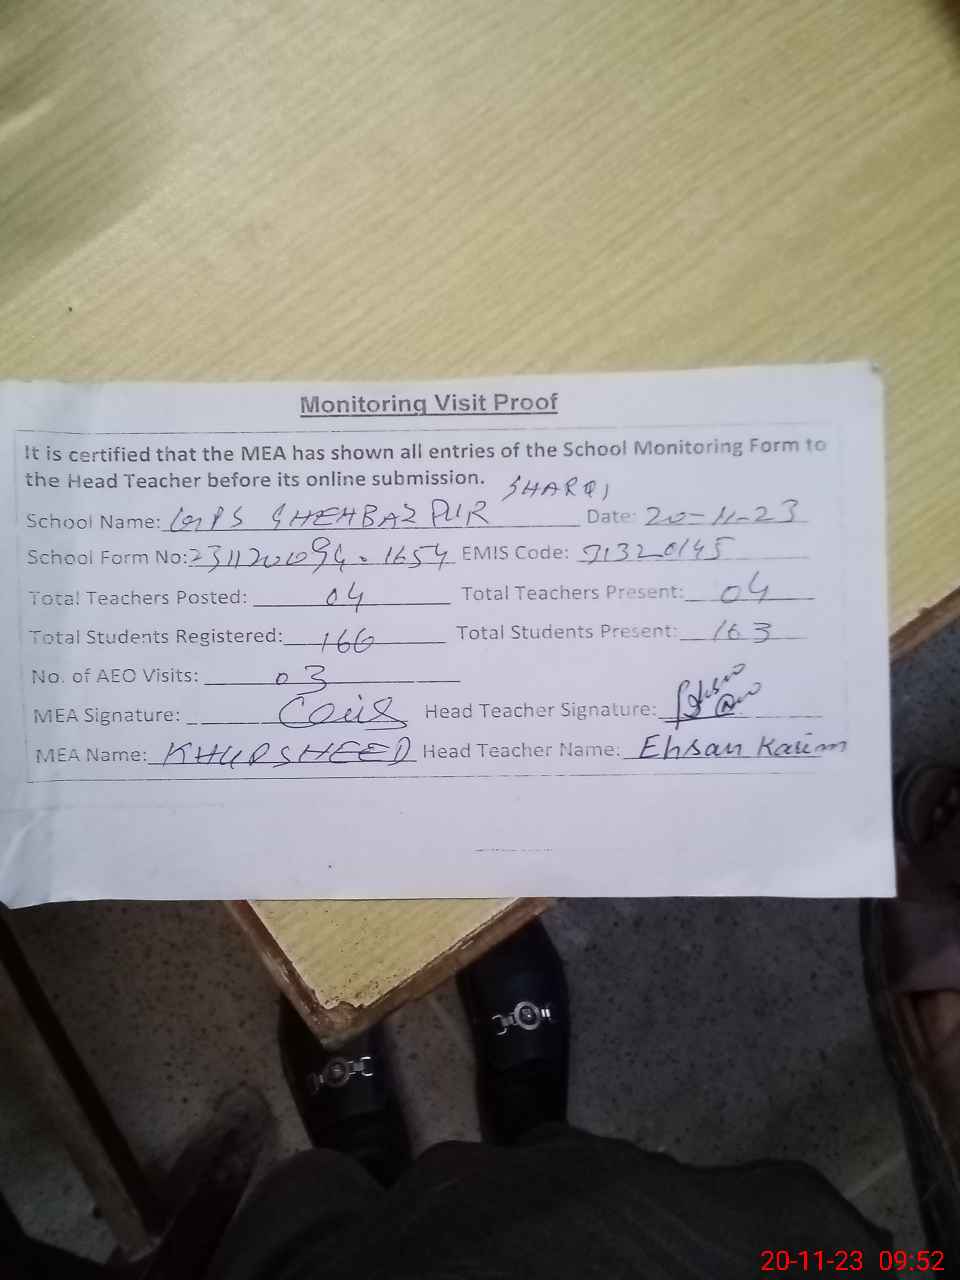 Monitoring Visit Proof
It is certified that the MEA has shown all entries of the School Monitoring Form to
the Head Teacher before its online submission.
SHARQI
School Name: GPS SHEHBAZ PUR Date: 20-11-23
School Form No: 231120094-1654 EMIS Code: 31320145
Total Teachers Posted: 04 Total Teachers Present: 04
Total Students Registered: 166 Total Students Present: 163
No. of AEO Visits: 03
MEA Signature: Head Teacher Signature:
MEA Name: KHURSHEED Head Teacher Name: Ehsan Karim
20-11-23 09:52